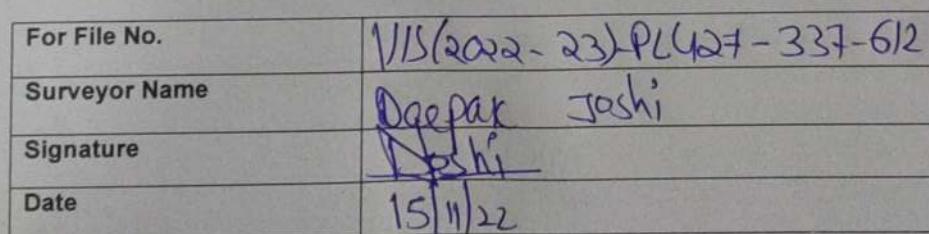 For File No. VIS(2022-23)-PL427-337-612
Surveyor Name Deepak Joshi
Signature DJoshi
Date 15/11/22